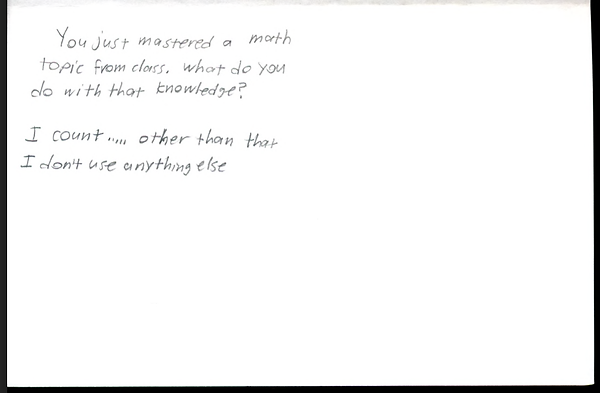 You just mastered a math
topic from class. what do you
do with that knowledge?
I count..... other than that
I don't use anything else